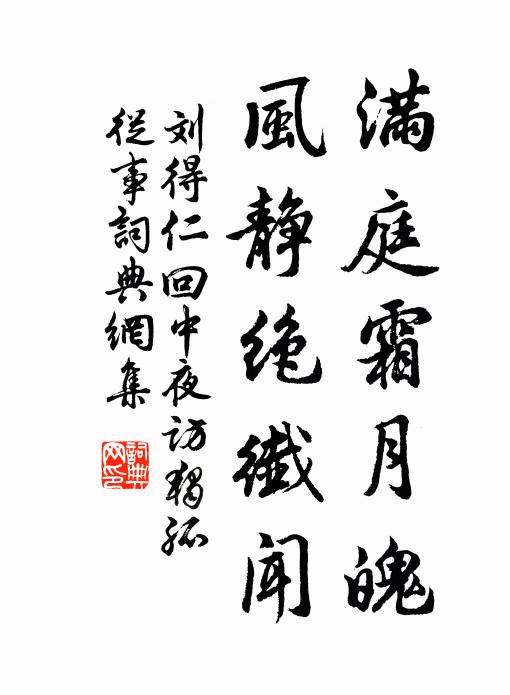 满庭霜月魄
風静绝纖闻
刘得仁回中夜访独孤
從事詞典網集
詞典
网印